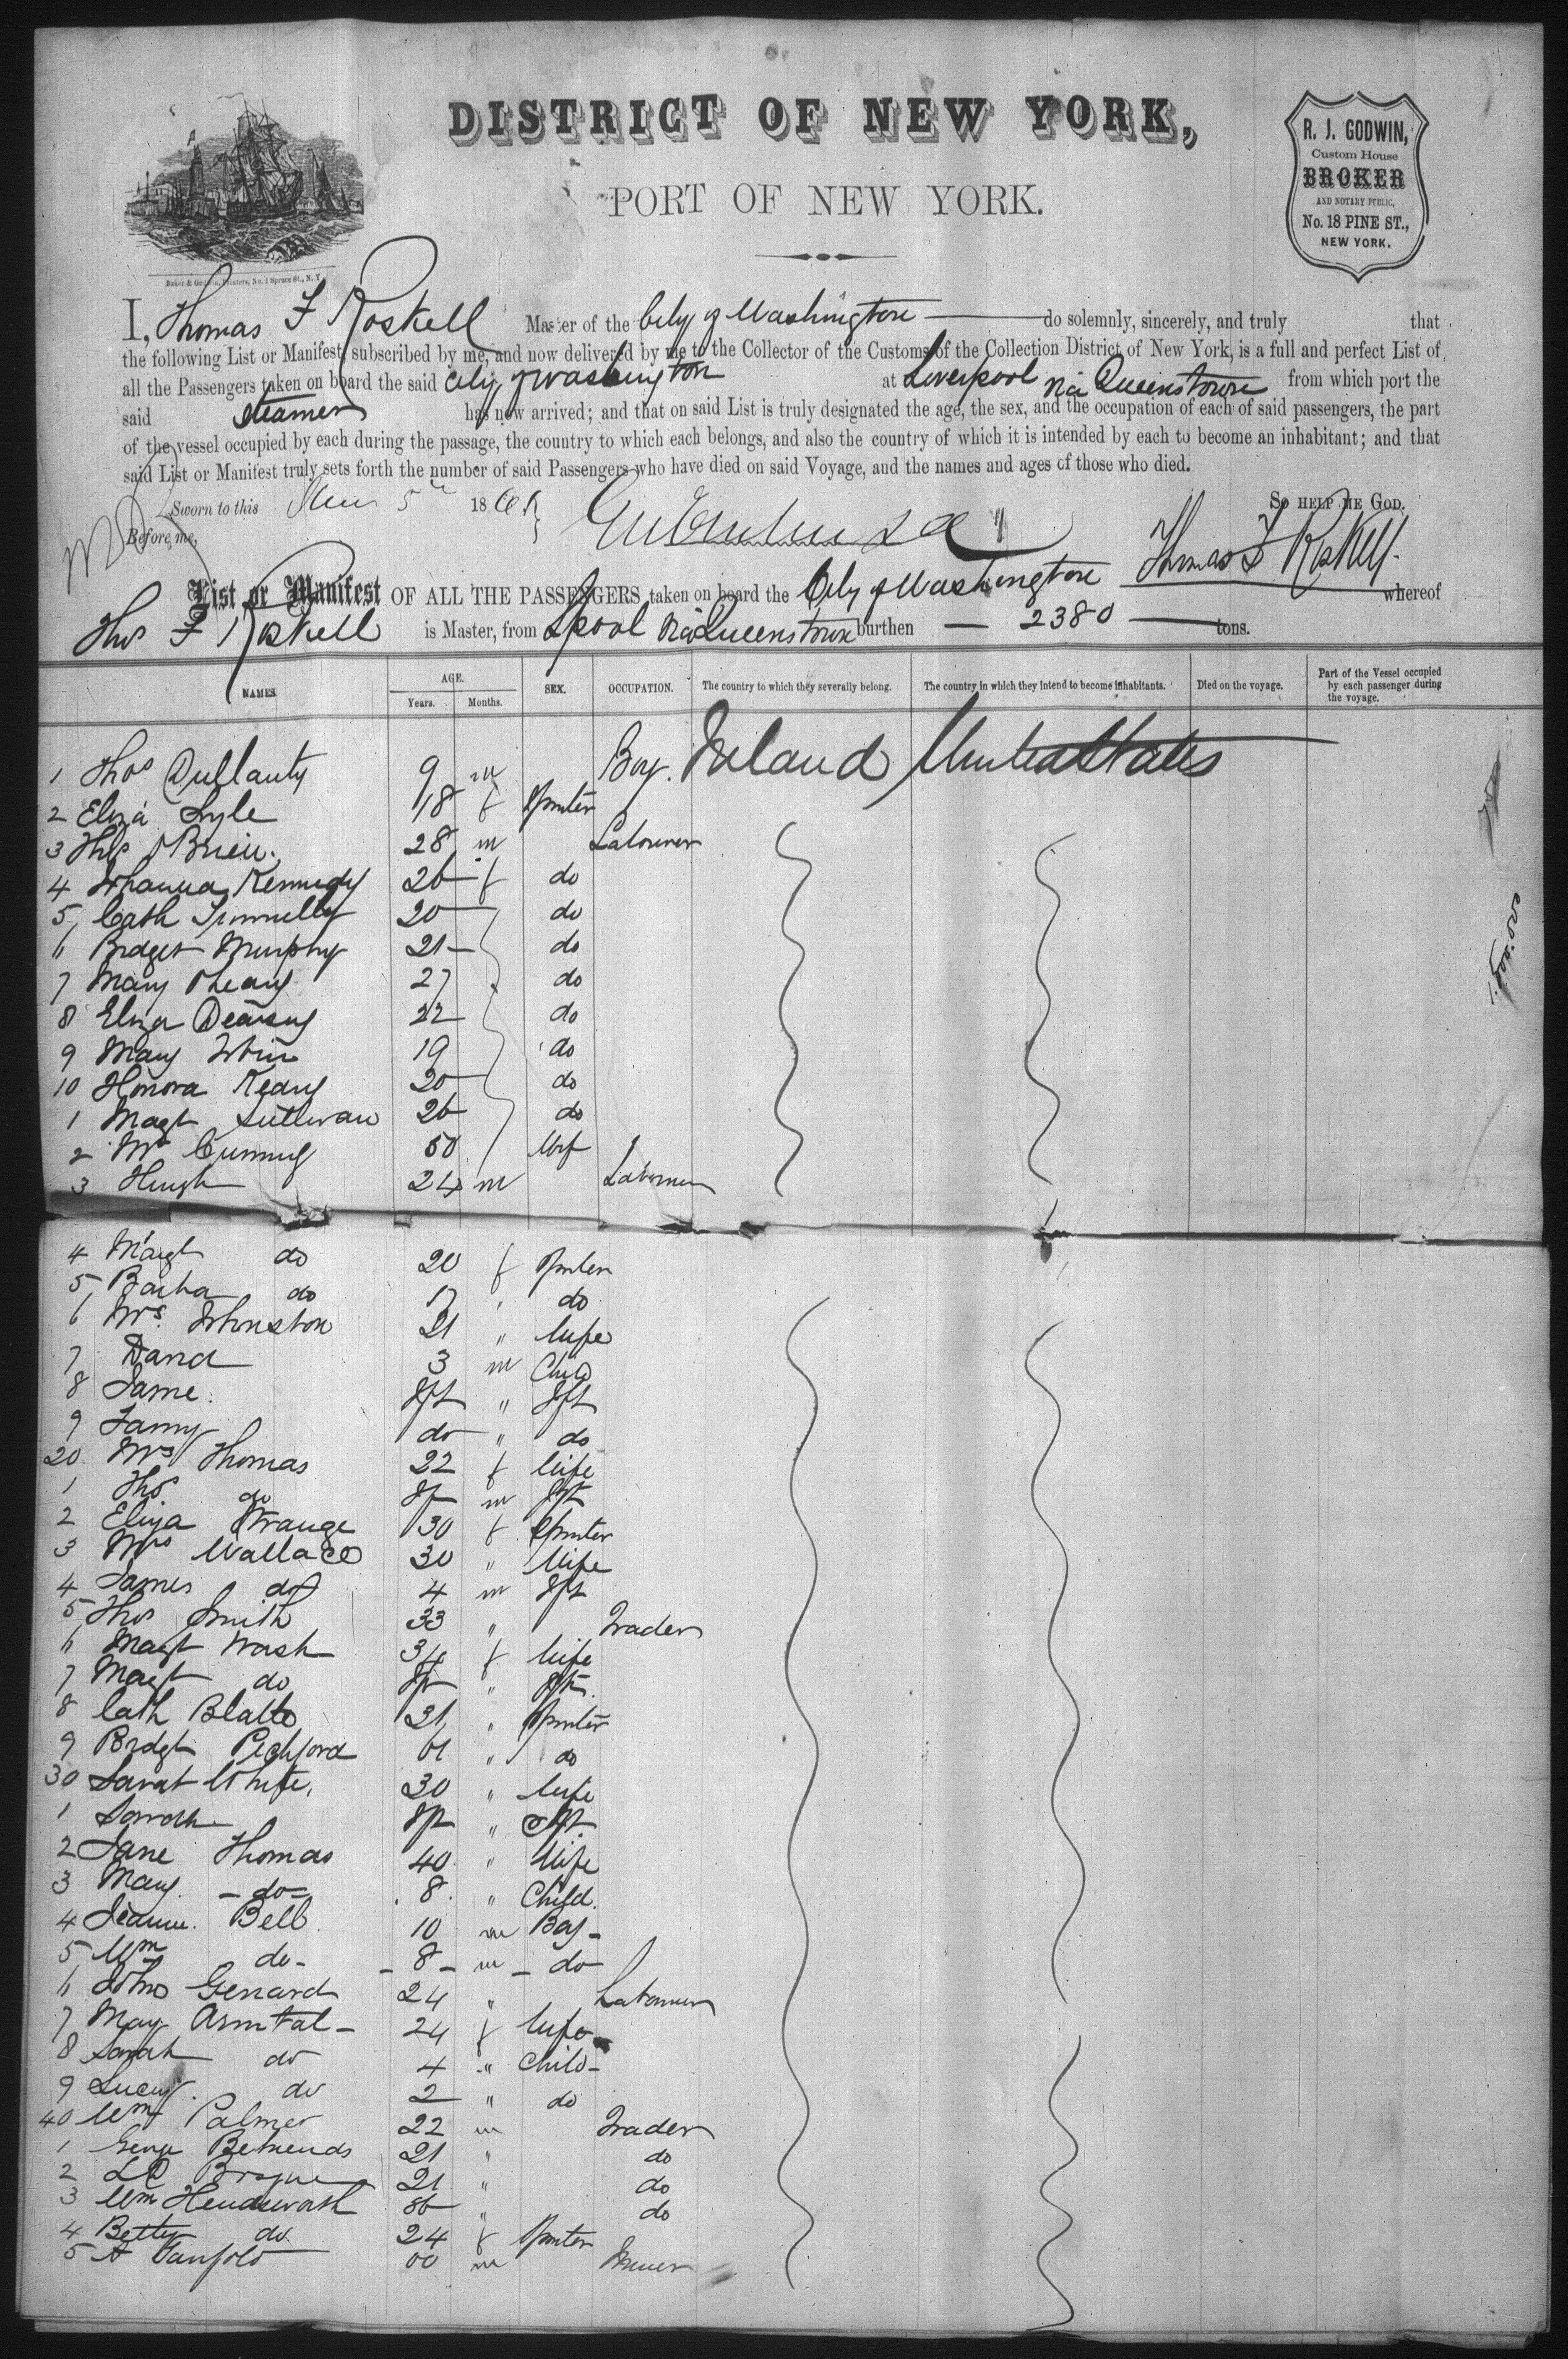 DISTRICT OF NEW YORK,
PORT OF NEW YORK.
R. J. GODWIN,
Custom House
BROKER
AND NOTARY PUBLIC,
No. 18 PINE ST.,
NEW YORK.
Baker & Godwin, Printers, No. 1 Spruce St., N. Y.
I, Thomas F Roskell Master of the City of Washington do solemnly, sincerely, and truly that
the following List or Manifest, subscribed by me, and now delivered by me to the Collector of the Customs of the Collection District of New York, is a full and perfect List of
all the Passengers taken on board the said City of Washington at Liverpool via Queenstown from which port the
said Steamer has now arrived; and that on said List is truly designated the age, the sex, and the occupation of each of said passengers, the part
of the vessel occupied by each during the passage, the country to which each belongs, and also the country of which it is intended by each to become an inhabitant; and that
said List or Manifest truly sets forth the number of said Passengers who have died on said Voyage, and the names and ages of those who died.
Sworn to this 5th 186 So HELP ME GOD.
Before me,
Thomas F Roskell
List or Manifest OF ALL THE PASSENGERS taken on board the City of Washington whereof
Thos F Roskell is Master, from Lpool via Queenstown burthen — 2380 — tons.
NAMES. AGE. Years. Months. SEX. OCCUPATION. The country to which they severally belong. The country in which they intend to become inhabitants. Died on the voyage. Part of the Vessel occupied by each passenger during the voyage.
1 Thos Dullanty 9 m Boy. Ireland United States
2 Eliza Lyle 18 f Spinster
3 Thos OBrien 28 m Labourer
4 Johanna Kennedy 26 f do
5 Cath 20 do
6 Bridget Murphy 21 do
7 Mary OLeary 27 do
8 Eliza 22 do
9 Mary 19 do
10 Honora Keany 20 do
1 Magt Sullivan 26 do
2 Mrs 50 Wif
3 Hugh 24 m Labourer
4 Margt do 20 f Spinster
5 Barba do 17 " do
6 Mrs. Johnston 21 " Wife
7 David 3 m Child
8 Jane Ift " Ift
9 Fanny do " do
20 Mrs Thomas 22 f Wife
1 Thos do If m Ift
2 Eliza Strange 30 f Spinster
3 Mrs Wallace 30 " Wife
4 James do 4 m Ift
5 Thos Smith 33 " Trader
6 Magt Wash 34 f Wife
7 Magt do Ift " Ift
8 Cath 31 " Spinster
9 Bridgt Pichford 61 " do
30 Sarah White 30 " Wife
1 Sarah Ift " Ift
2 Jane Thomas 40 " Wife
3 Mary - do - 8 " Child
4 Bell 10 m Boy -
5 Wm do - 8 - m - do
6 John Gerrard 24 " Labourer
7 Mary 24 f Wife
8 Sarah do 4 " Child -
9 Lucy do 2 " do
40 Wm Palmer 22 m Trader
1 George 21 " do
2 21 " do
3 Wm 36 " do
4 Betty do 24 f Spinster
5 A 60 m Miner